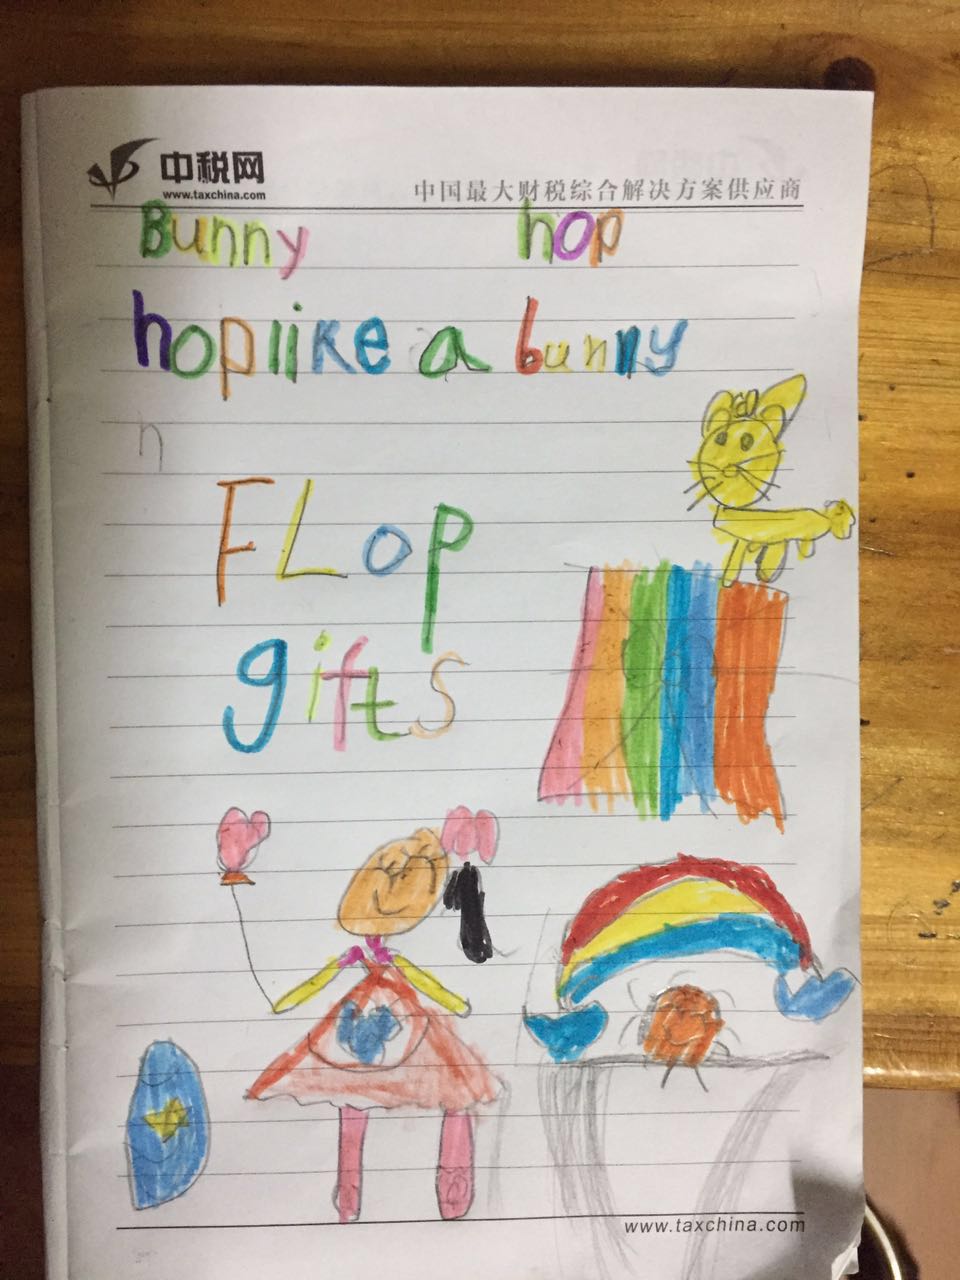 中税网
www.taxchina.com
中国最大财税综合解决方案供应商
Bunny hop
hop like a bunny
n
FLop
gifts
www.taxchina.com